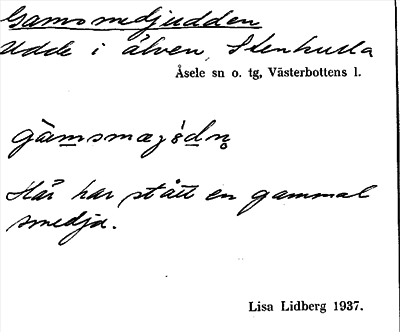 Gamsmedjudden
Udde i älven, Stenkulla
Åsele sn o. tg, Västerbottens l.
Här har stått en gammal
smedja.
Lisa Lidberg 1937.